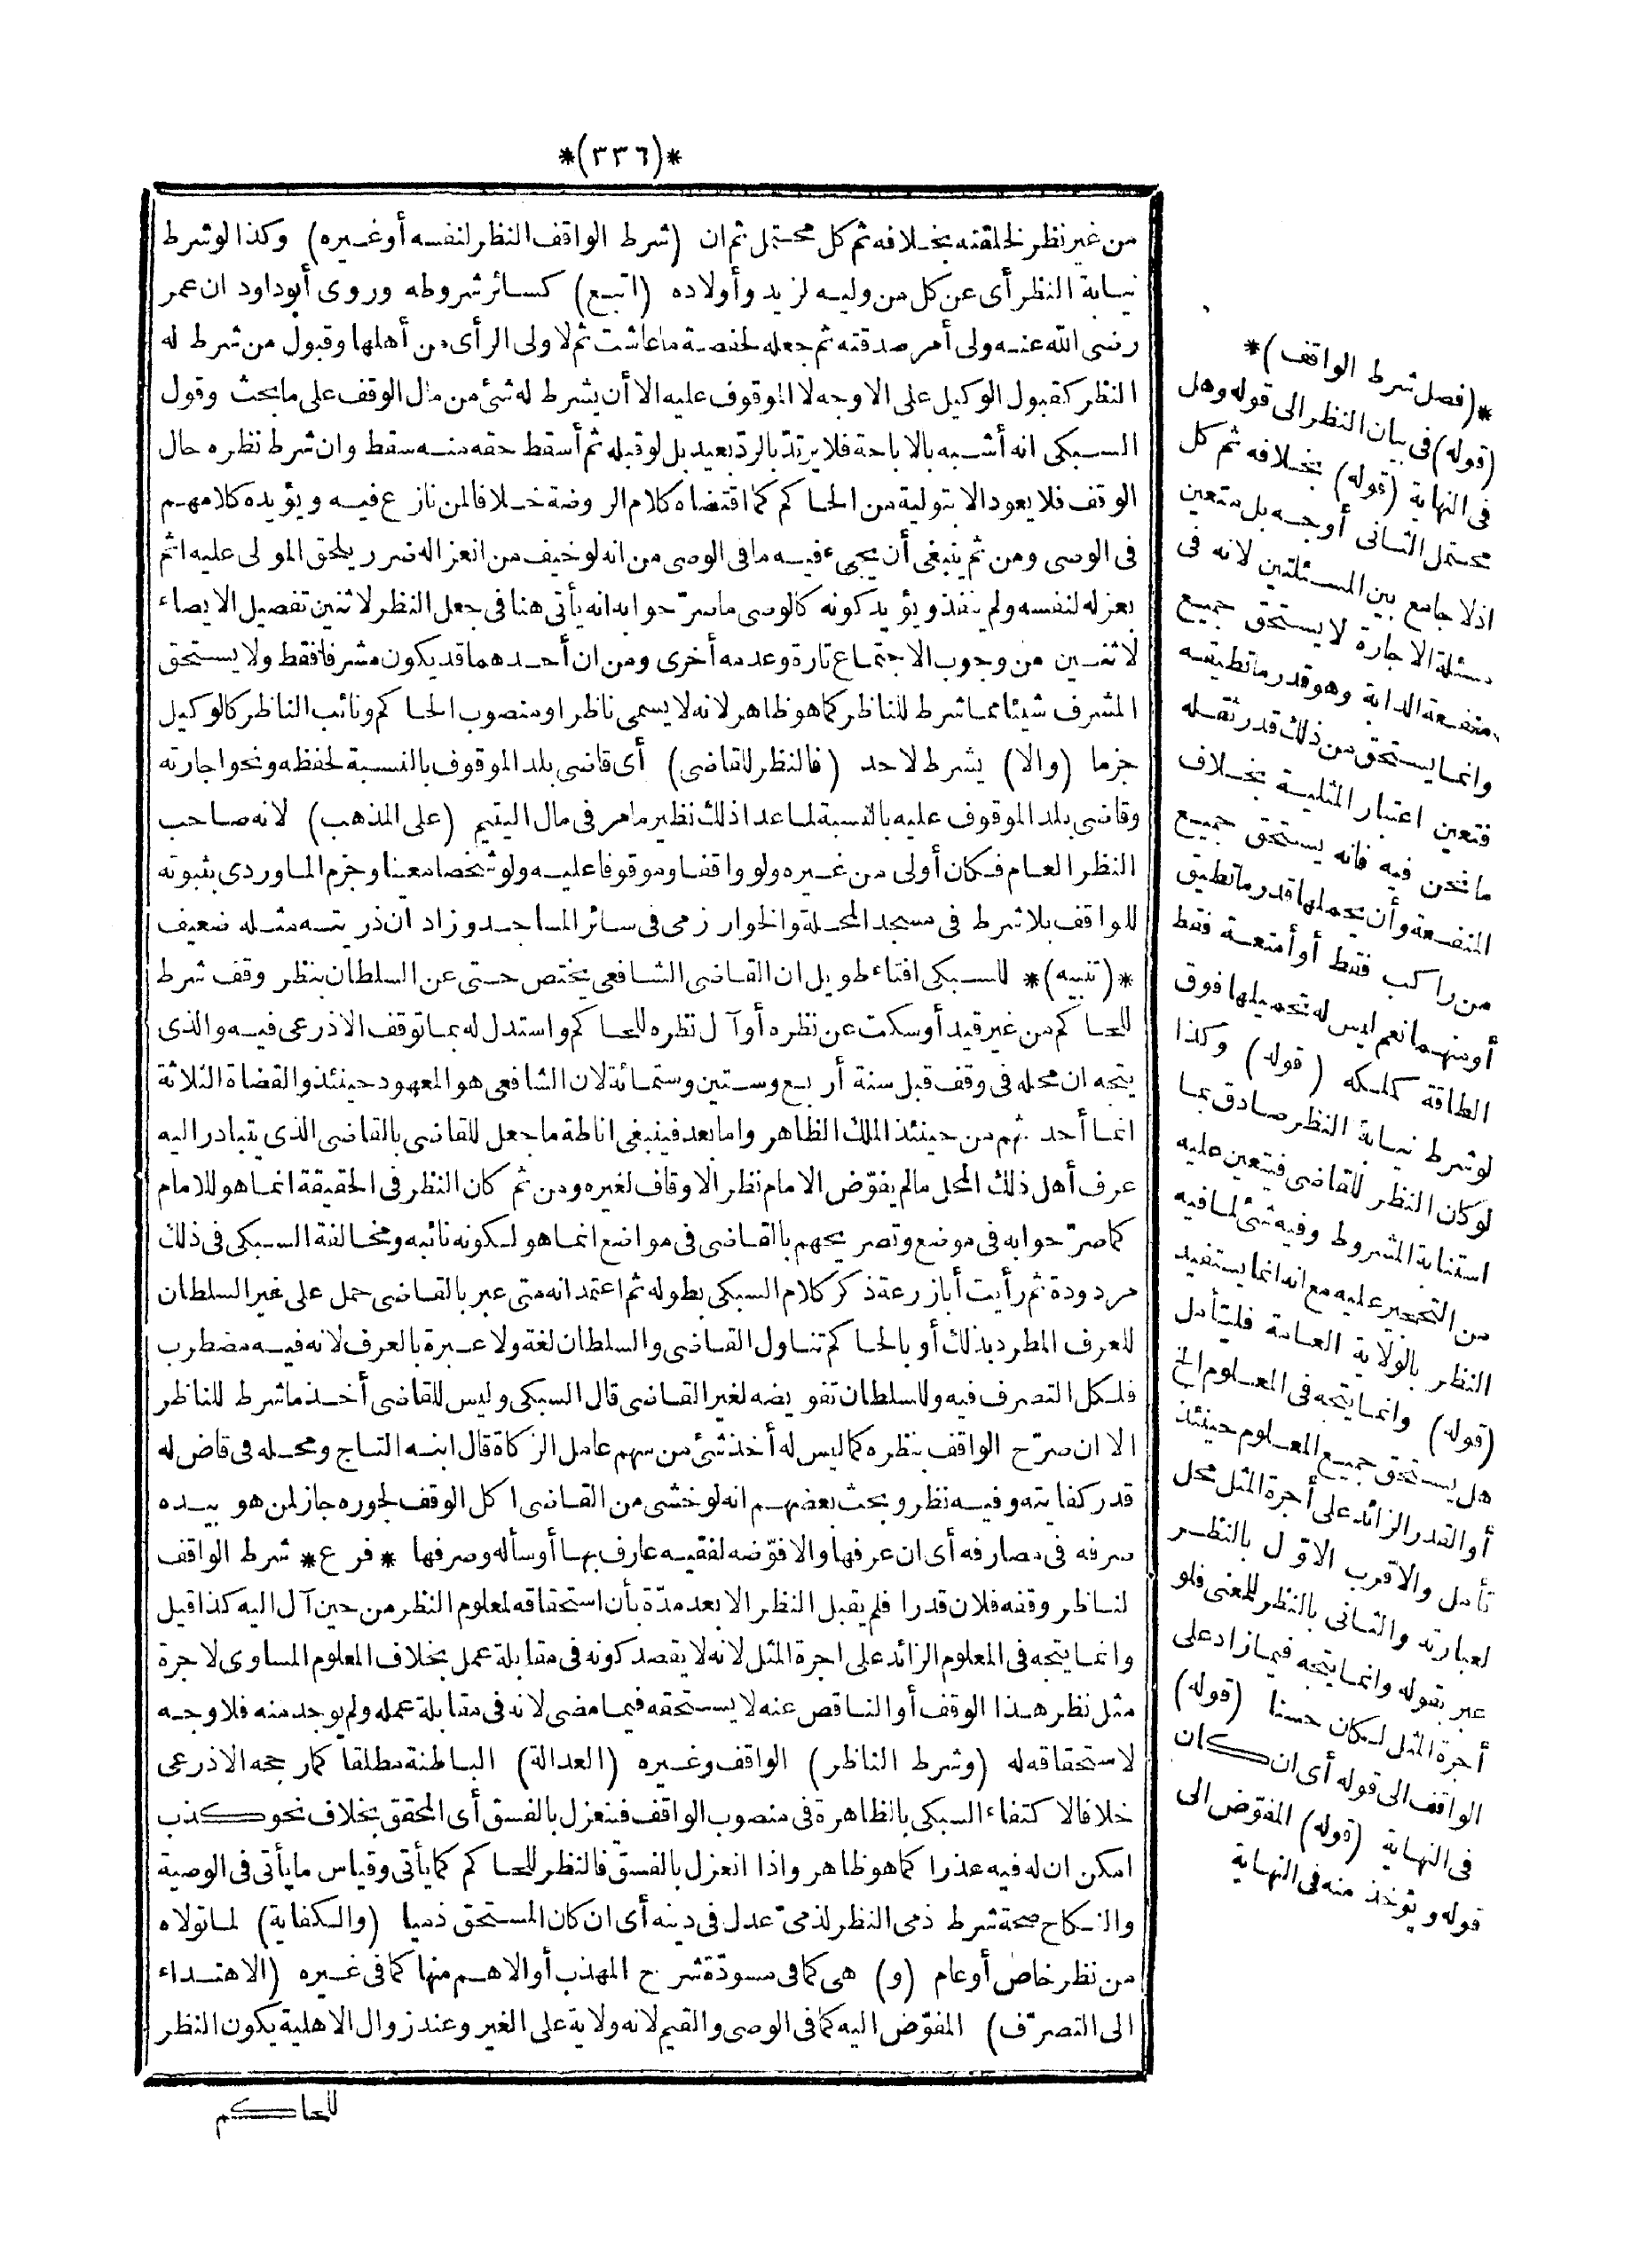 *(٣٣٦)*
من غير نظر لخلقته بخلافه ثم كل محتمل ثم ان (شرط الواقف النظر لنفسه أو غيره) وكذا لو شرط
نيابة النظر أى عن كل من وليه لزيد وأولاده (اتبع) كسائر شروطه وروى أبو داود ان عمر
رضى الله عنه ولى أمر صدقته ثم جعله لحفصة ما عاشت ثم لاولى الرأى من أهلها وقبول من شرط له
النظر كقبول الوكيل على الاوجه لا الموقوف عليه الا أن يشرط له شئ من مال الوقف على ما بحث وقول
السبكى انه أشبه بالاباحة فلا يرتدّ بالردّ بعيد بل لو قبله ثم أسقط حقه منه سقط وان شرط نظره حال
الوقف فلا يعود الا بتولية من الحاكم كما اقتضاه كلام الروضة خلافا لمن نازع فيه ويؤيده كلامهم
فى الوصى ومن ثم ينبغى أن يجىء فيه ما فى الوصى من انه لو خيف من انعزاله ضرر يلحق المولى عليه اثم
بعزله لنفسه ولم ينفذ ويؤيد كونه كالوصى ما صرّحوا به انه يأتى هنا فى جعل النظر لاثنين تفصيل الايصاء
لاثنين من وجوب الاجتماع تارة وعدمه أخرى ومن ان أحدهما قد يكون مشرفا فقط ولا يستحق
المشرف شيئا مما شرط للناظر كما هو ظاهر لانه لا يسمى ناظرا ومنصوب الحاكم ونائب الناظر كالوكيل
جزما (والا) يشرط لاحد (فالنظر للقاضى) أى قاضى بلد الموقوف بالنسبة لحفظه ونحو اجارته
وقاضى بلد الموقوف عليه بالنسبة لما عدا ذلك نظير ما مر فى مال اليتيم (على المذهب) لانه صاحب
النظر العام فكان أولى من غيره ولو واقفا وموقوفا عليه ولو شخصا معينا وجزم الماوردى بثبوته
للواقف بلا شرط فى مسجد المحلة والخوارزمى فى سائر المساجد وزاد ان ذريته مثله ضعيف
*(تنبيه)* للسبكى افتاء طويل ان القاضى الشافعى يختص حتى عن السلطان بنظر وقف شرط
للحاكم من غير قيد أو سكت عن نظره أو آل نظره للحاكم واستدل له بما توقف الاذرعى فيه والذى
يتجه ان محله فى وقف قبل سنة أربع وستين وستمائة لان الشافعى هو المعهود حينئذ والقضاة الثلاثة
انما أحدثهم من حينئذ الملك الظاهر واما بعد فينبغى اناطة ما جعل للقاضى بالقاضى الذى يتبادر اليه
عرف أهل ذلك المحل ما لم يفوّض الامام نظر الاوقاف لغيره ومن ثم كان النظر فى الحقيقة انما هو للامام
كما صرّحوا به فى موضع وتصريحهم بالقاضى فى مواضع انما هو لكونه نائبه ومخالفة السبكى فى ذلك
مردودة ثم رأيت أبا زرعة ذكر كلام السبكى بطوله ثم اعتمد انه متى عبر بالقاضى حمل على غير السلطان
للعرف المطرد بذلك أو بالحاكم تناول القاضى والسلطان لغة ولا عبرة بالعرف لانه فيه مضطرب
فلكل التصرف فيه وللسلطان تفويضه لغير القاضى قال السبكى وليس للقاضى أخذ ما شرط للناظر
الا ان صرّح الواقف بنظره كما ليس له أخذ شئ من سهم عامل الزكاة قال ابنه التاج ومحله فى قاض له
قدر كفايته وفيه نظر وبحث بعضهم انه لو خشى من القاضى اكل الوقف لجوره جاز لمن هو بيده
صرفه فى مصارفه أى ان عرفها والا فوّضه لفقيه عارف بها أو سأله وصرفها *فرع* شرط الواقف
لناظر وقفه فلان قدرا فلم يقبل النظر الا بعد مدّة بأن استحقاقه لمعلوم النظر من حين آل اليه كذا قيل
وانما يتجه فى المعلوم الزائد على اجرة المثل لانه لا يقصد كونه فى مقابلة عمل بخلاف المعلوم المساوى لاجرة
مثل نظر هذا الوقف أو الناقص عنه لا يستحقه فيما مضى لانه فى مقابلة عمله ولم يوجد منه فلا وجه
لاستحقاقه له (وشرط الناظر) الواقف وغيره (العدالة) الباطنة مطلقا كما رجحه الاذرعى
خلافا لاكتفاء السبكى بالظاهرة فى منصوب الواقف فينعزل بالفسق أى المحقق بخلاف نحو كذب
امكن ان له فيه عذرا كما هو ظاهر واذا انعزل بالفسق فالنظر للحاكم كما يأتى وقياس ما يأتى فى الوصية
والنكاح صحة شرط ذمى النظر لذمىّ عدل فى دينه أى ان كان المستحق ذميا (والكفاية) لما تولاه
من نظر خاص أو عام (و) هى كما فى مسودّة شرح المهذب أو الاهم منها كما فى غيره (الاهتداء
الى التصرّف) المفوّض اليه كما فى الوصى والقيم لانه ولاية على الغير وعند زوال الاهلية يكون النظر
للحاكم
*(فصل شرط الواقف)*
(قوله) فى بيان النظر الى قوله وهل
فى النهاية (قوله) بخلافه ثم كل
محتمل الثانى أوجه بل متعين
اذلا جامع بين المسئلتين لانه فى
مسئلة الاجارة لا يستحق جميع
منفعة الدابة وهو قدر ما تطيقه
وانما يستحق من ذلك قدر ثقله
فتعين اعتبار المثلية بخلاف
ما نحن فيه فانه يستحق جميع
المنفعة وأن يحملها قدر ما تطيق
من راكب فقط أو أمتعة فقط
أو منهما نعم ليس له تحميلها فوق
الطاقة كملكه (قوله) وكذا
لو شرط نيابة النظر صادق بما
لو كان النظر للقاضى فيتعين عليه
استنابة المشروط وفيه شئ لما فيه
من التحجير عليه مع انه انما يستفيد
النظر بالولاية العامة فليتأمل
(قوله) وانما يتجه فى المعلوم الخ
هل يستحق جميع المعلوم حينئذ
أو القدر الزائد على أجرة المثل محل
تأمل والاقرب الاوّل بالنظر
لعبارته والثانى بالنظر للمعنى فلو
عبر بقوله وانما يتجه فيما زاد على
أجرة المثل لكان حسنا (قوله)
الواقف الى قوله أى ان كان
فى النهاية (قوله) المفوّض الى
قوله ويؤخذ منه فى النهاية